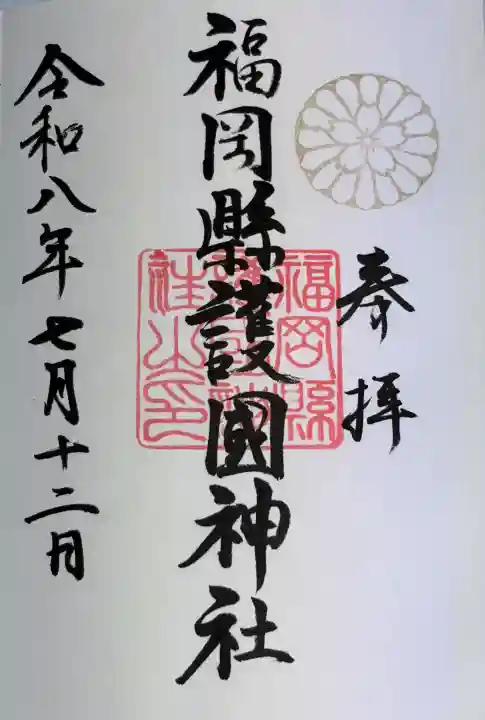 奉拝
福岡縣護國神社
福岡縣護國神社之印
令和八年七月十二日